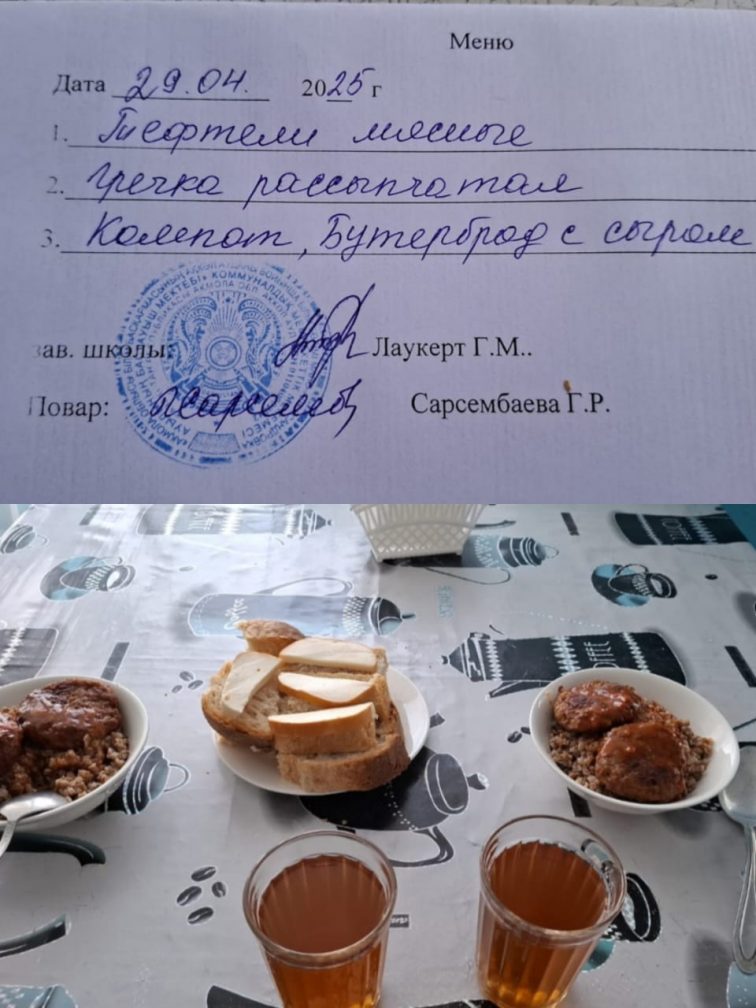 Меню
Дата 29.04. 2025 г
1. Тефтели мясные
2. Гречка рассыпчатая
3. Компот, Бутерброд с сыром
зав. школы: Лаукерт Г.М..
Повар: Сарсембаева Г.Р.